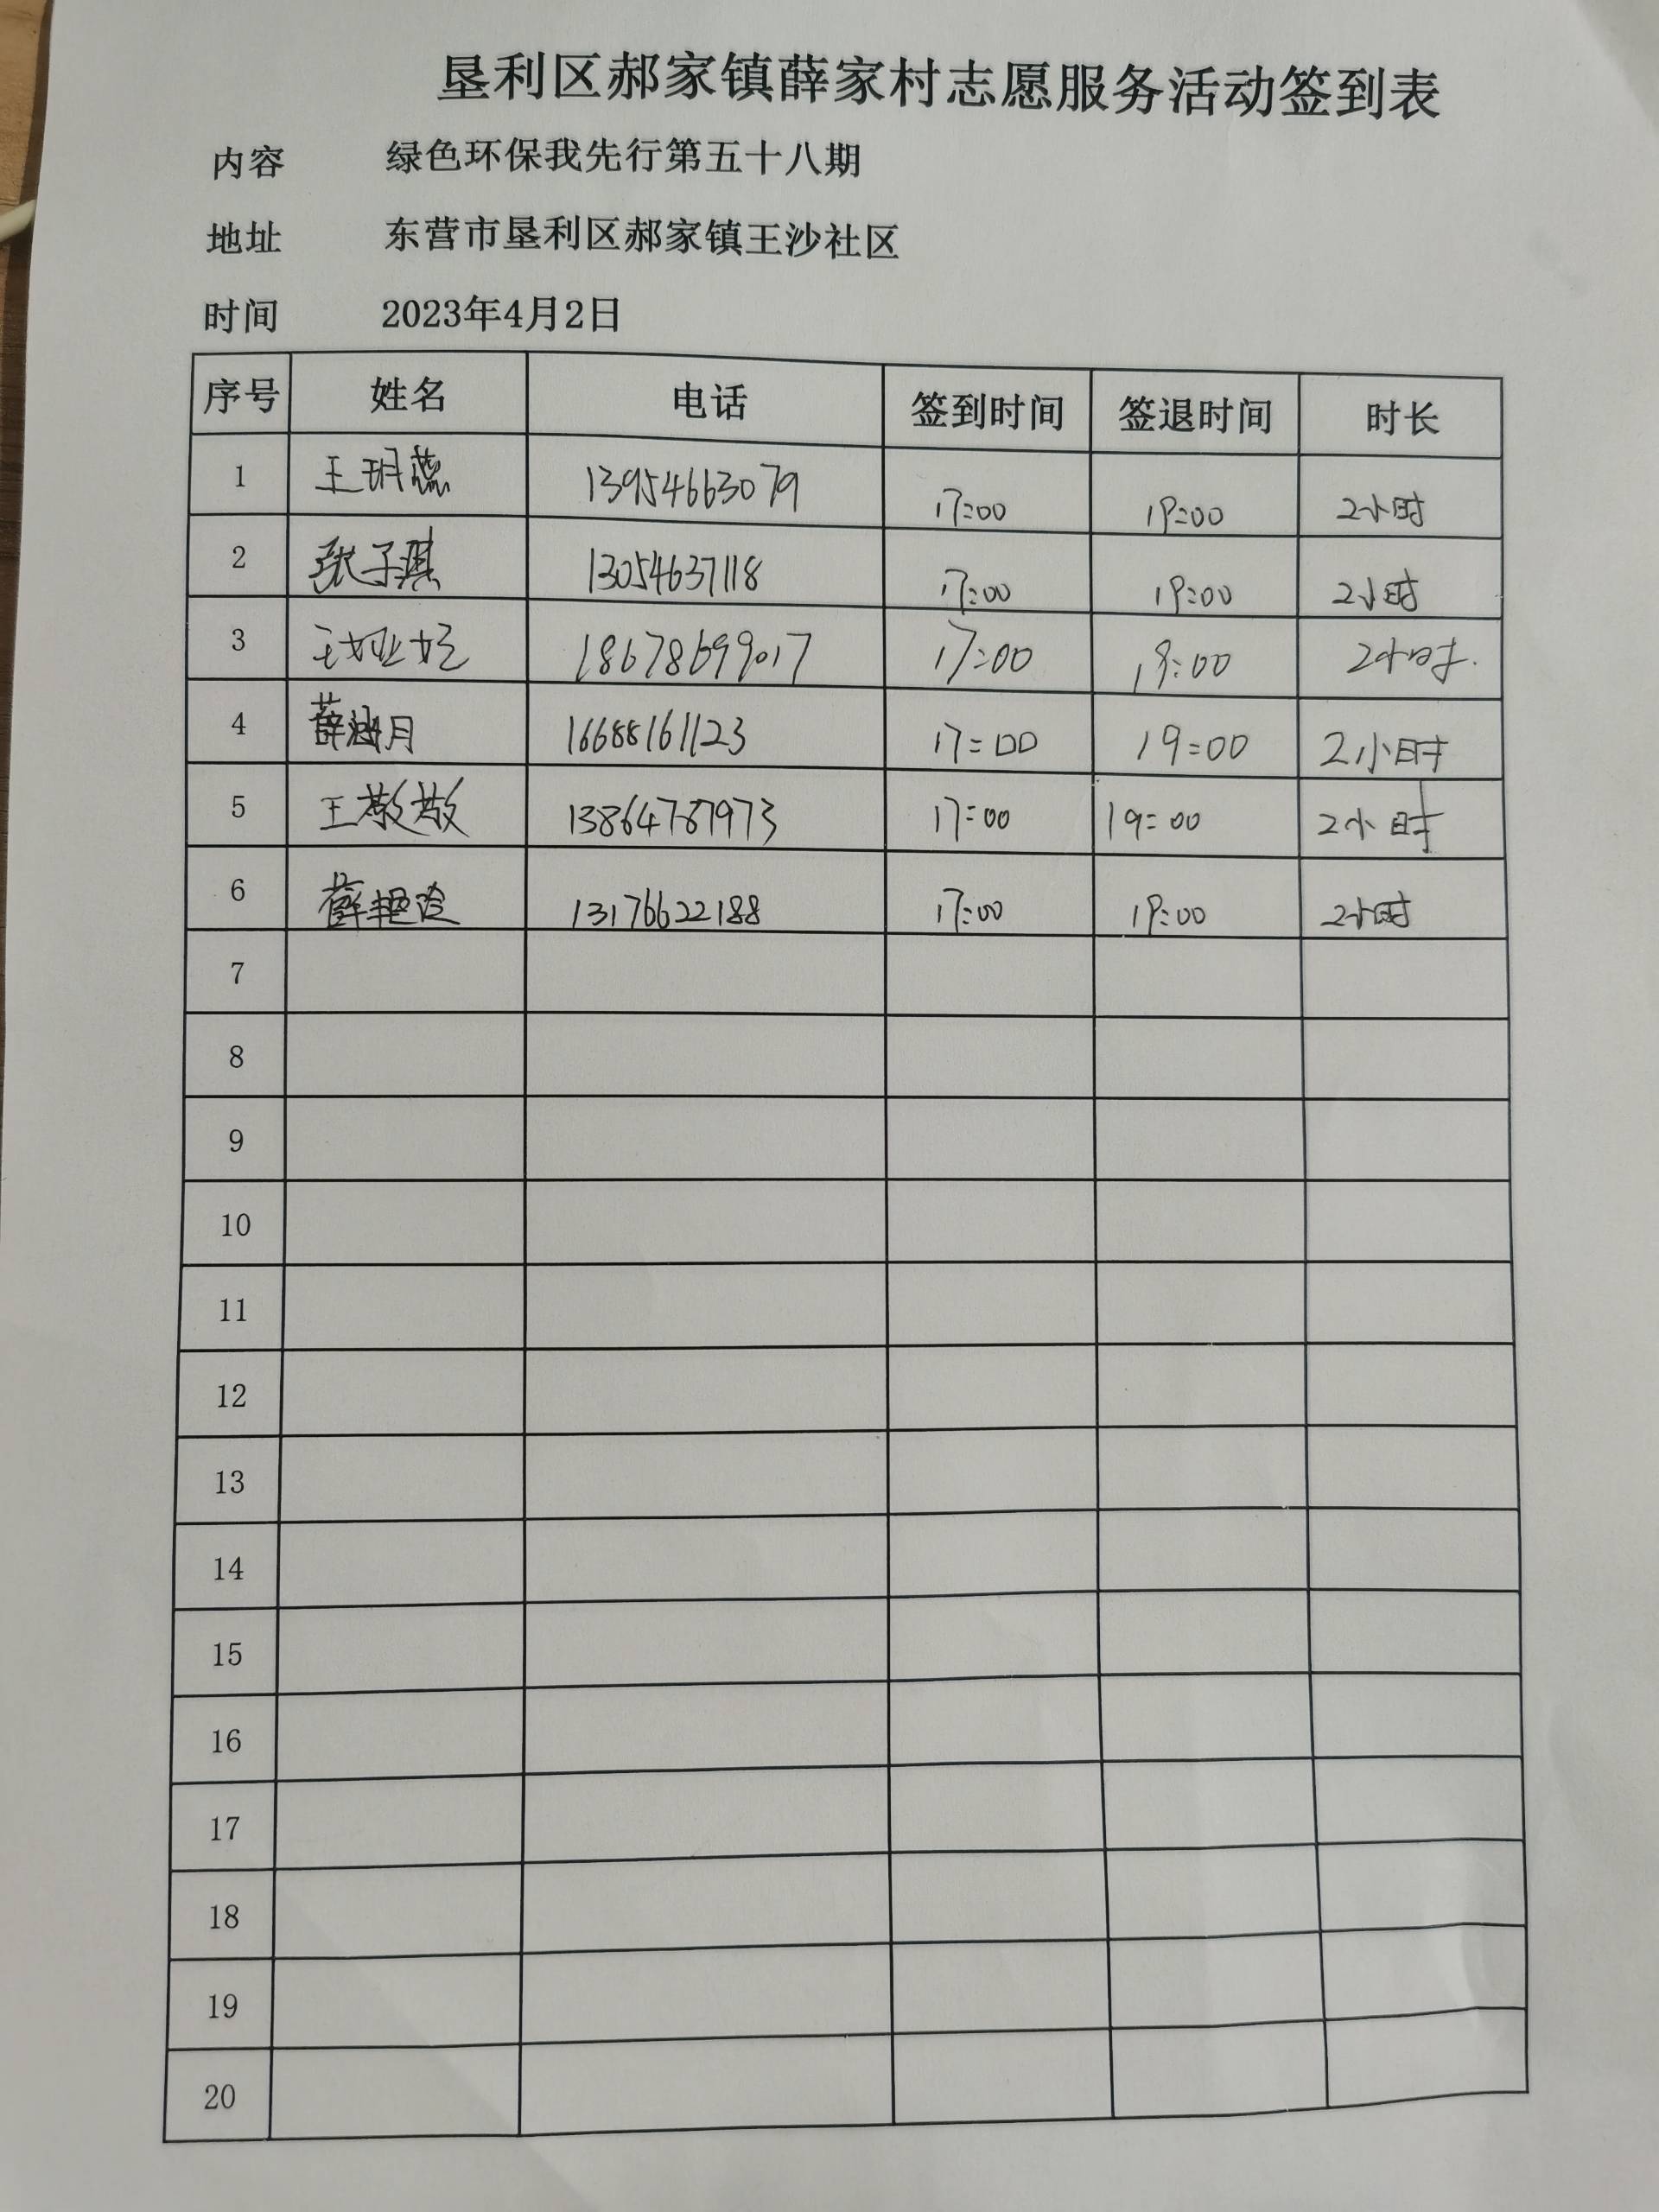 垦利区郝家镇薛家村志愿服务活动签到表
内容 绿色环保我先行第五十八期
地址 东营市垦利区郝家镇王沙社区
时间 2023年4月2日
序号 姓名 电话 签到时间 签退时间 时长
1 王玥蕊 13954663079 17:00 19:00 2小时
2 张子琪 13054637118 17:00 19:00 2小时
3 18678699017 17:00 19:00 2小时.
4 薛涵月 16688161123 17:00 19:00 2小时
5 王敬敬 13864787973 17:00 19:00 2小时
6 薛艳玲 13176622188 17:00 19:00 2小时
7
8
9
10
11
12
13
14
15
16
17
18
19
20